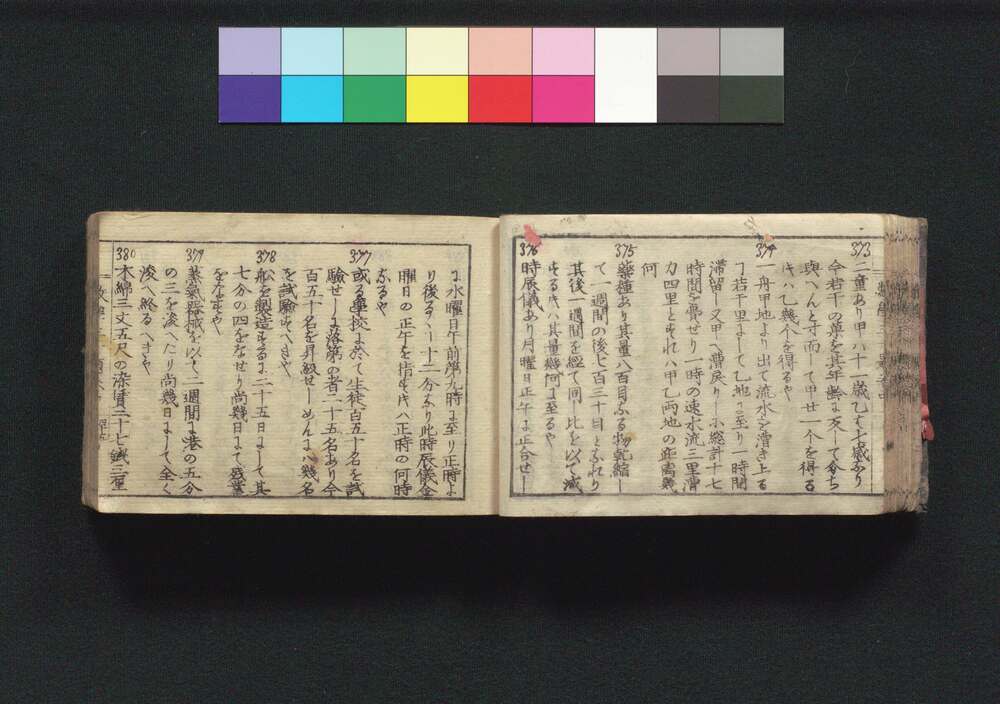 373
二童あり甲ハ十一歳乙ハ七歳なり
今若干の菓を其年齢に反して分ち
與へんとす而して甲廿一个を得る
時ハ乙幾个を得るや
374
一舟甲地より出て流水を漕き上る
丁若干里よして乙地に至り一時間
滞留し又甲へ漕戻りし小総計十七
時間を費せり一時の速水流三里漕
力四里とすれハ甲乙両地の距離幾
何
375
藥種あり其量八百目なる物乾縮し
て一週間の後七百三十目となれり
其後一週間を經て同し比を以て減
する時ハ其量幾何に至るや
376
時辰儀あり月曜日正午に正合せし
に水曜日午前第九時に至り正時よ
り後るゝ十二分なり此時辰儀金
曜日の正午を指す時ハ正時の何時
なるや
377
或る學校に於て生徒百五十名を試
驗せしに落第の者二十五名あり今
百五十名を昇級せしめんにハ幾名
を試驗すへきや
378
船を製造するに二十五日にして其
七分の四をなせり尚幾日にて盛業
をなすや
379
蒸氣器械を以て二週間に港の五分
の三を浚へたり尚幾日にして全く
浚へ終るへきや
380
木綿三丈五尺の染賃二十七錢三厘